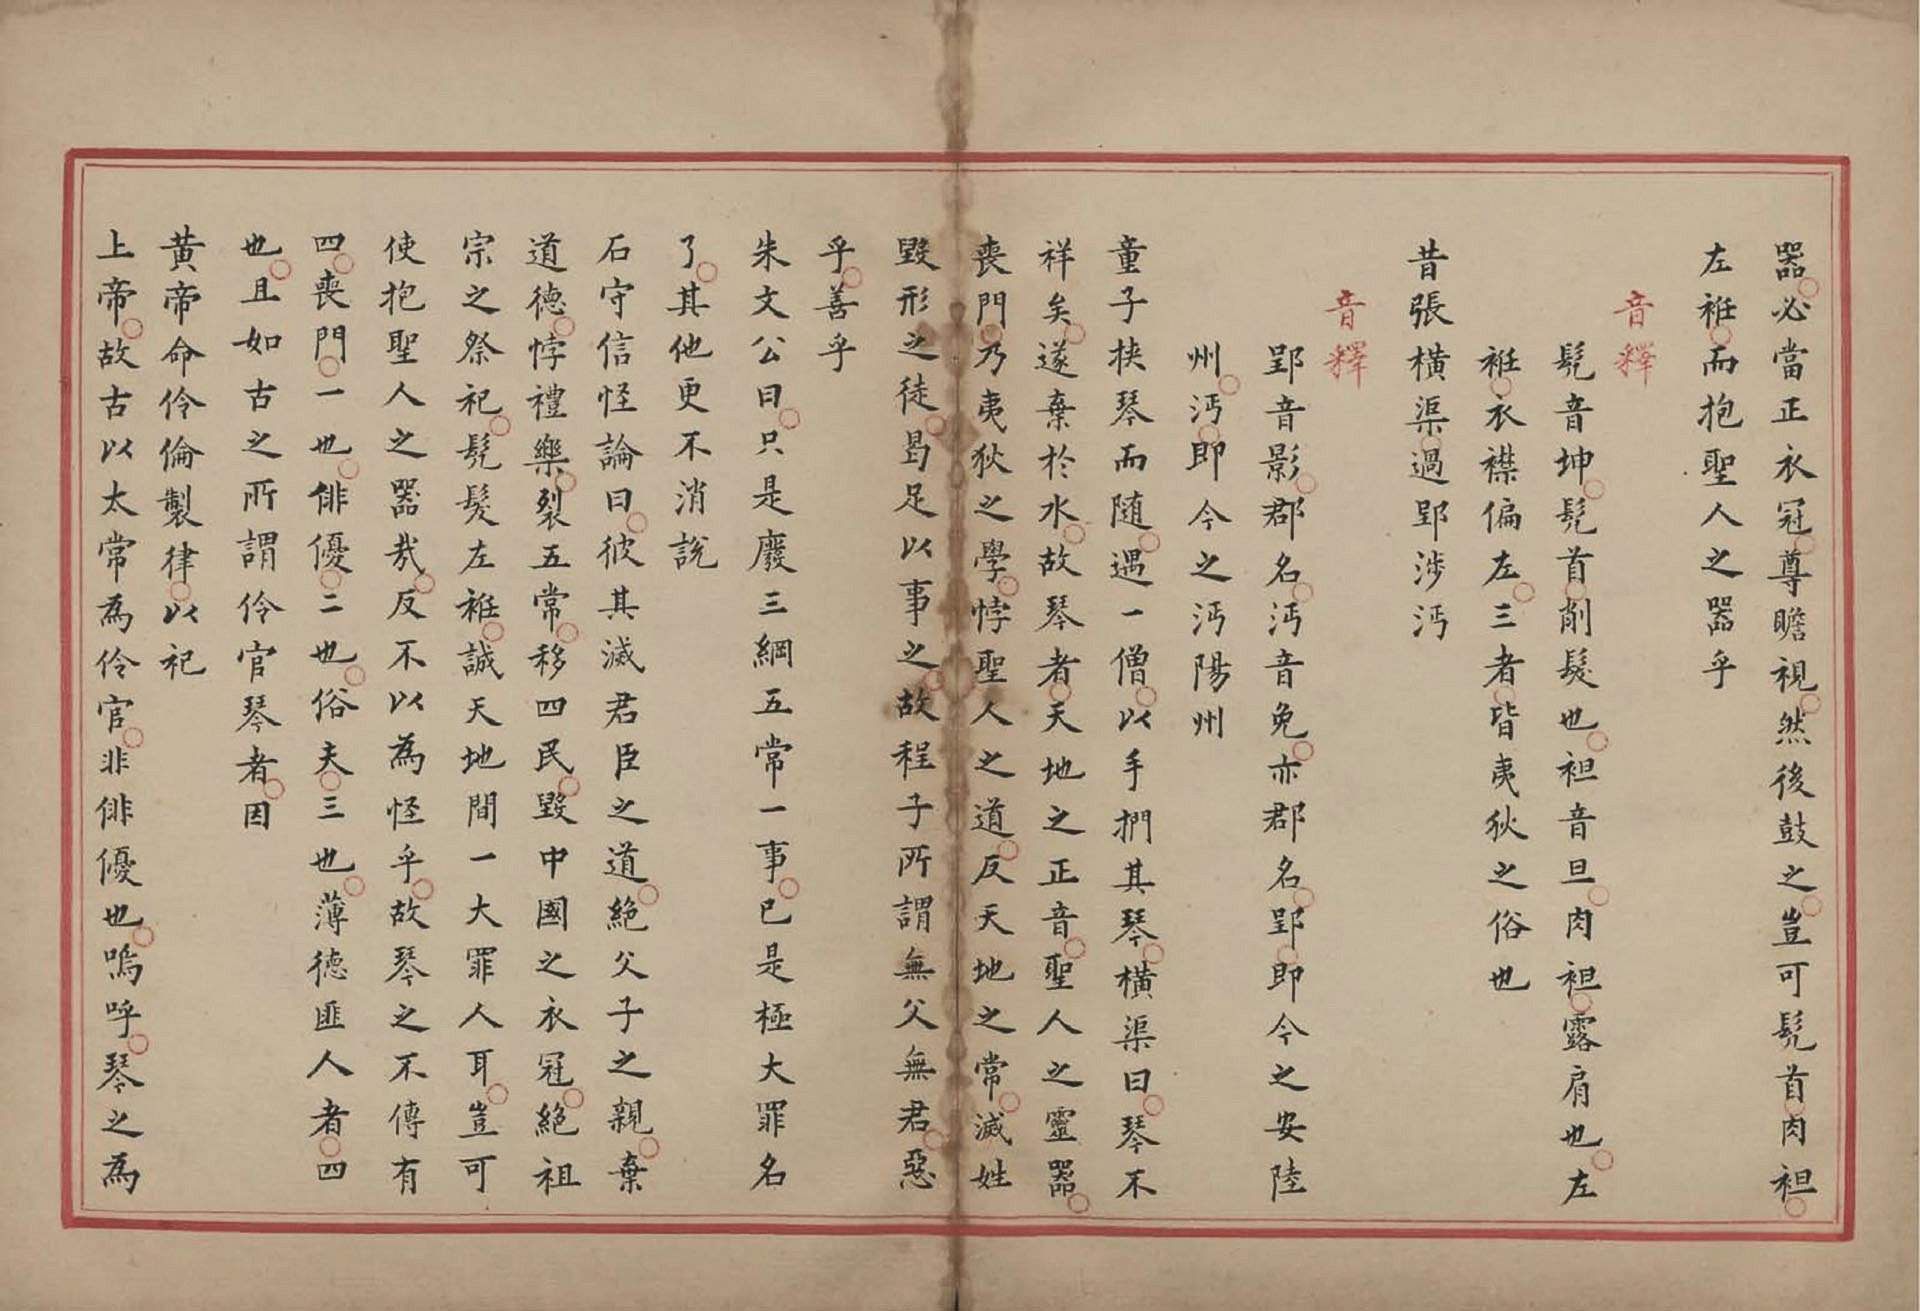 器必當正衣冠尊瞻視然後鼓之豈可髡首肉袒
左袵而抱聖人之器乎
音釋
髡音坤髡首削髮也袒音旦肉袒露肩也左
袵衣襟偏左三者皆夷狄之俗也
昔張橫渠過郢涉沔
音釋
郢音影郡名沔音免亦郡名郢即今之安陸
州沔即今之沔陽州
童子挾琴而随遇一僧以手捫其琴橫渠曰琴不
祥矣遂棄於水故琴者天地之正音聖人之靈器
喪門乃夷狄之學悖聖人之道反天地之常滅姓
毀形之徒曷足以事之故程子所謂無父無君惡
乎善乎
朱文公曰只是廢三綱五常一事已是極大罪名
了其他更不消說
石守信怪論曰彼其滅君臣之道絕父子之親棄
道德悖禮樂裂五常移四民毀中國之衣冠絕祖
宗之祭祀髡髮左袵誠天地間一大罪人耳豈可
使抱聖人之器㢤反不以為怪乎故琴之不傳有
四喪門一也俳優二也俗夫三也薄德匪人者四
也且如古之所謂伶官琴者因
黃帝命伶倫製律以祀
上帝故古以太常為伶官非俳優也嗚呼琴之為